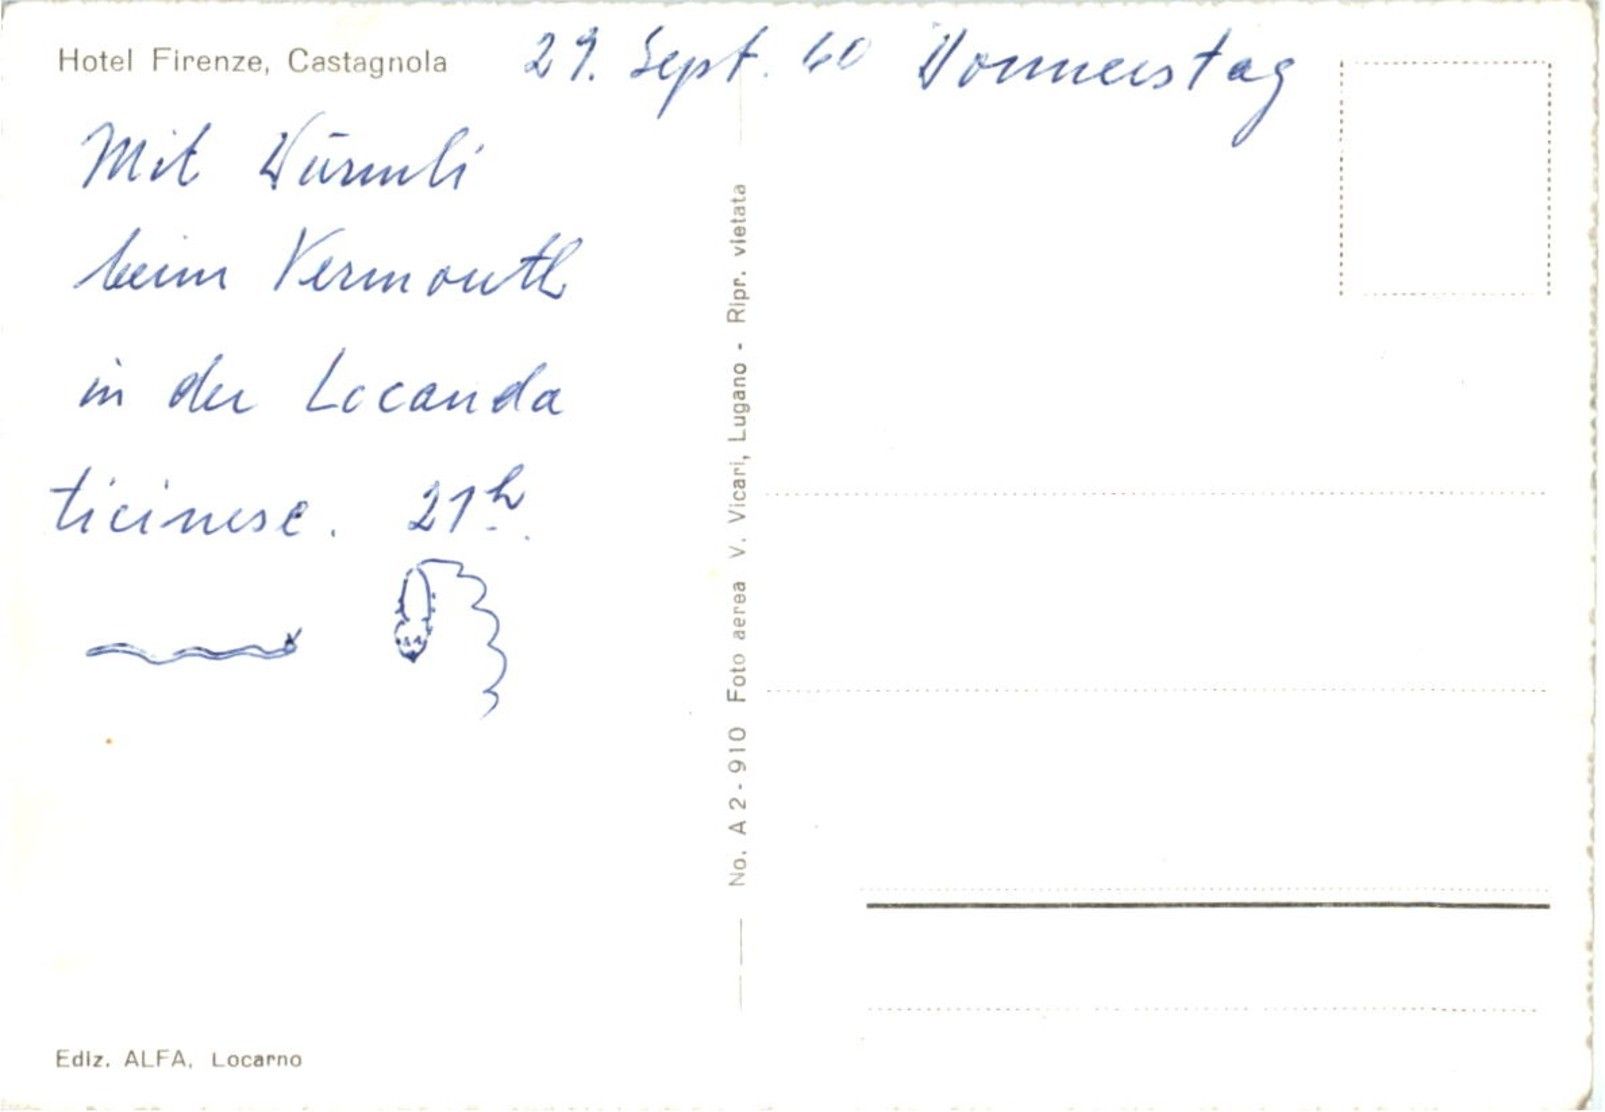 Hotel Firenze, Castagnola
29. Sept. 60 Donnerstag
Mit Würmli
beim Vermouth
in der Locanda
ticinese. 21h.
No. A 2 - 910 Foto aerea V. Vicari, Lugano - Ripr. vietata
Ediz. ALFA, Locarno